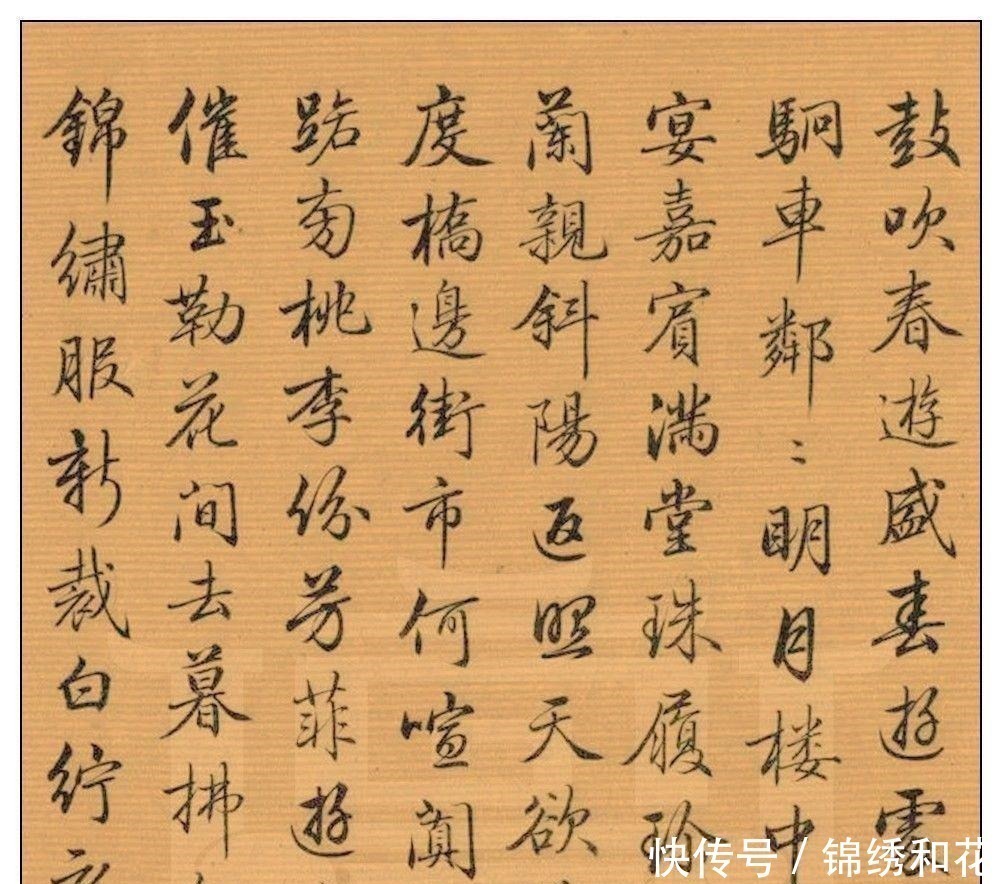 鼓吹春遊盛春遊雲
駉車鄰〻明月楼中
宴嘉賔滿堂珠履珍
蘭親斜陽返照天欲
度橋邊街市何喧闐
路旁桃李份芳菲遊
催玉勒花间去暮拂
錦繡服新裁白紵
快传号 / 锦绣和花